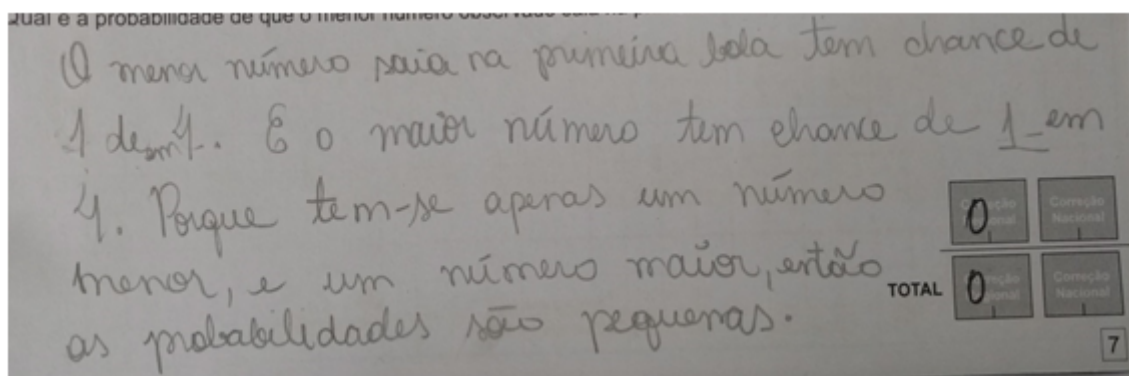 Qual é a probabilidade de que o menor número observado saia na
O menor número saia na primeira bola tem chance de
1 de em 4. E o maior número tem chance de 1 em
4. Porque tem-se apenas um número
menor, e um número maior, então
as probabilidades são pequenas.
0 Correção Nacional
TOTAL 0 Correção Nacional
7